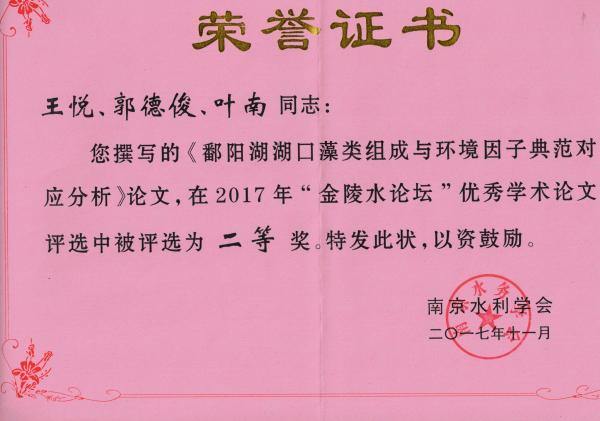 荣誉证书
王悦、郭德俊、叶南同志：
您撰写的《鄱阳湖湖口藻类组成与环境因子典范对
应分析》论文，在2017年“金陵水论坛”优秀学术论文
评选中被评选为 二等 奖。特发此状，以资鼓励。
南京水利学会
二〇一七年十一月